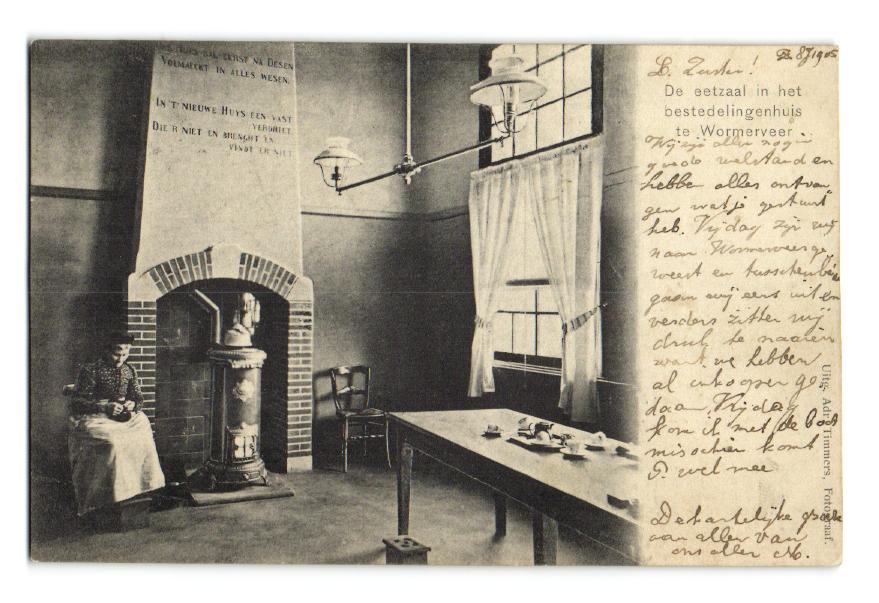 EERST NA DESEN
VOLMAECKT IN ALLES WESEN.
IN 'T NIEUWE HUYS EEN VAST
VERDRIET
DIE 'R NIET EN BRENGHT EN
VINDT 'ER NIET
8/7 1905
L. Zuster!
De eetzaal in het
bestedelingenhuis
te Wormerveer
Wij zijn allen nog in
goede welstand en
hebben alles ontvan
gen wat je gestuurt
heb. Vrijdag zijn wij
naar Wormerveer ge
weest en tusschenbeide
gaan wij eens uit en
verders zitten wij
druk te naaien
want we hebben
al inkoopen ge
daan. Vrijdag
kom ik met de boot
misschien komt
P. wel mee
De hartelijke groete
aan allen van
ons allen
Uitg. Adr. Timmers, Fotograaf.